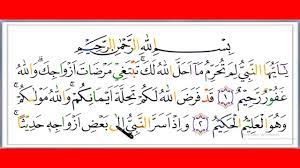 بِسْمِ اللهِ الرَّحْمٰنِ الرَّحِيْمِ
يٰٓاَيُّهَا النَّبِيُّ لِمَ تُحَرِّمُ مَآ اَحَلَّ اللهُ لَكَۚ تَبْتَغِيْ مَرْضَاتَ اَزْوَاجِكَۗ وَاللهُ
غَفُوْرٌ رَّحِيْمٌ ١ قَدْ فَرَضَ اللهُ لَكُمْ تَحِلَّةَ اَيْمَانِكُمْۚ وَاللهُ مَوْلٰىكُمْۚ
وَهُوَ الْعَلِيْمُ الْحَكِيْمُ ٢ وَاِذْ اَسَرَّ النَّبِيُّ اِلٰى بَعْضِ اَزْوَاجِهٖ حَدِيْثًاۚ